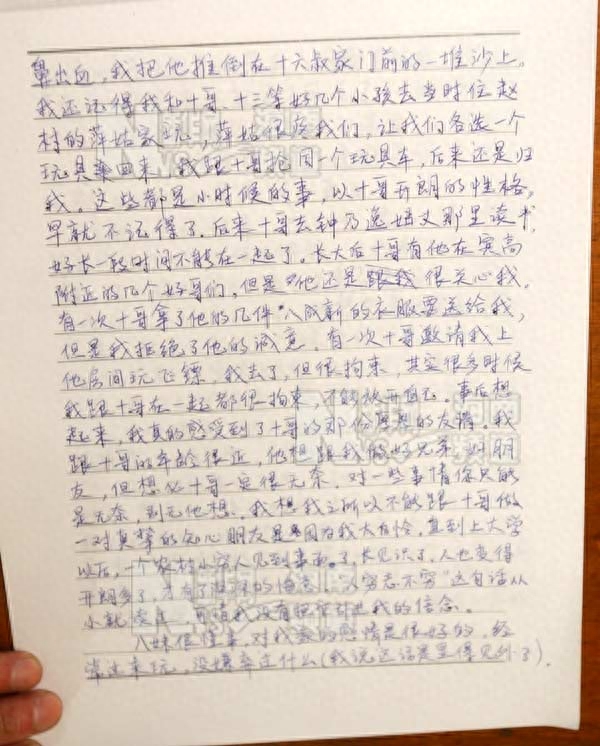 鼻出血，我把他推倒在十六叔家门前的一堆沙上。
我还记得我和十哥、十三等好几个小孩去当时住赵
村的萍姑家玩，萍姑很疼我们，让我们各选一个
玩具拿回来，我跟十哥抢同一个玩具车，后来还是归
我。这些都是小时候的事，以十哥开朗的性格，
早就不记得了。后来十哥去钟乃逸姑丈那里读书，
好长一段时间不能在一起了。长大后十哥有他在实高
附近的几个好哥们，但是他还是跟我很关心我。
有一次十哥拿了他的几件八成新的衣服要送给我，
但是我拒绝了他的诚意。有一次十哥邀请我上
他房间玩飞镖，我去了，但很拘束，其实很多时候
我跟十哥在一起都很拘束，不能放开自己。事后想
起来，我真的感受到了十哥的那份厚厚的友谊。我
跟十哥的年龄很近，他想跟我做好兄弟、好朋
友，但想必十哥一定很无奈，对一些事情你只能
是无奈，别无他想。我想我之所以不能跟十哥做
一对真挚的知心朋友是因为我太自恰，直到上大学
以后，一个农村小穷人见到事面了，长见识了，人也变得
开朗多了，才有了这样的悔意。"人穷志不穷"这句话从
小就读过，可惜我没有把它引进我的信念。
八妹很懂事，对我家的感情是很好的，经
常过来玩，没嫌弃过什么(我说这话是显得见外了)，